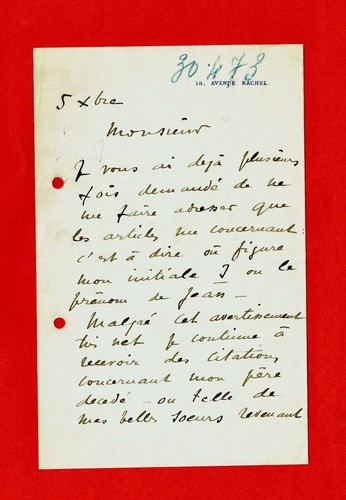 30.473
18, AVENUE RACHEL
5 Xbre
Monsieur
Je vous ai dejà plusieurs
fois demandé de ne
me faire adresser que
les articles me concernant:
c'est à dire où figure
mon initiale J ou le
prénom de Jean —
Malgré cet avertissement
très net je continue à
recevoir des citations
concernant mon père
decedé — ou telle de
mes belles soeurs revenant